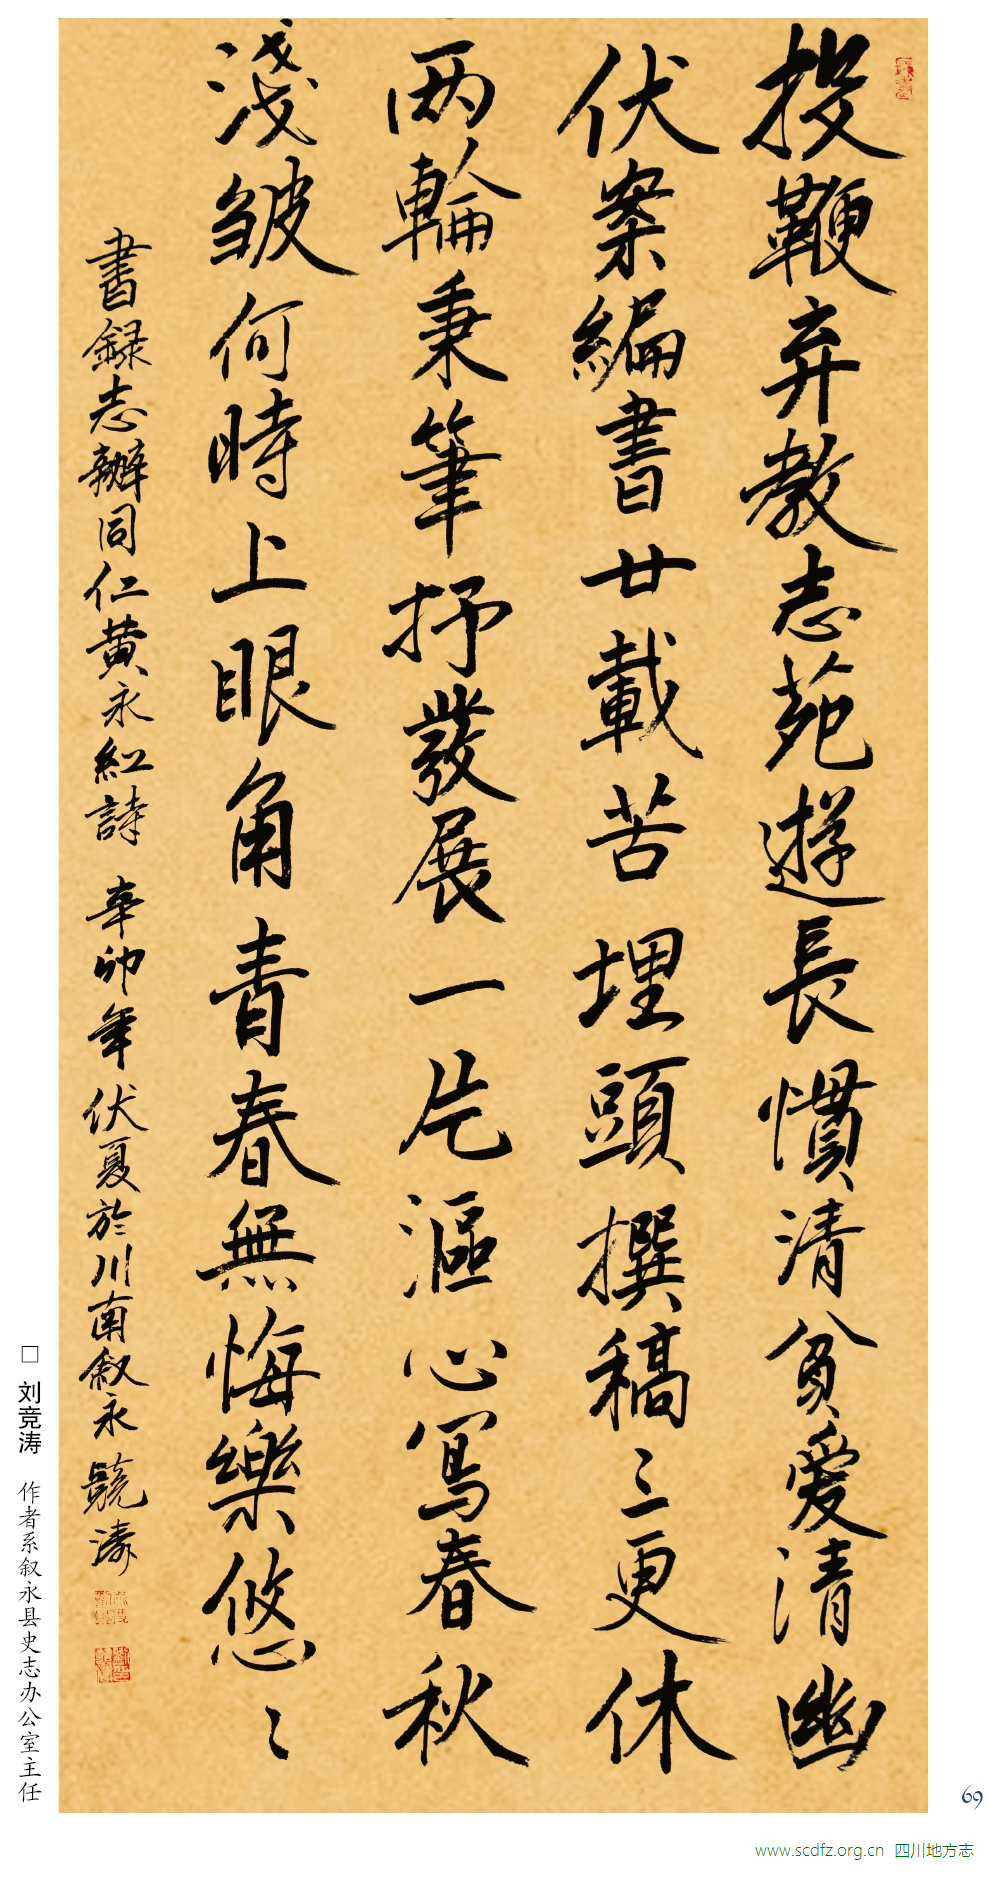 投鞭弃教志苑遊長慣清貧愛清幽
伏案編書廿載苦埋頭撰稿三更休
两輪秉筆抒發展一片漚心寫春秋
淺皱何時上眼角青春無悔樂悠〻
書録志辦同仁黄永紅詩 辛卯年伏夏於川南叙永 競濤
□ 刘竞涛 作者系叙永县史志办公室主任
69
www.scdfz.org.cn 四川地方志